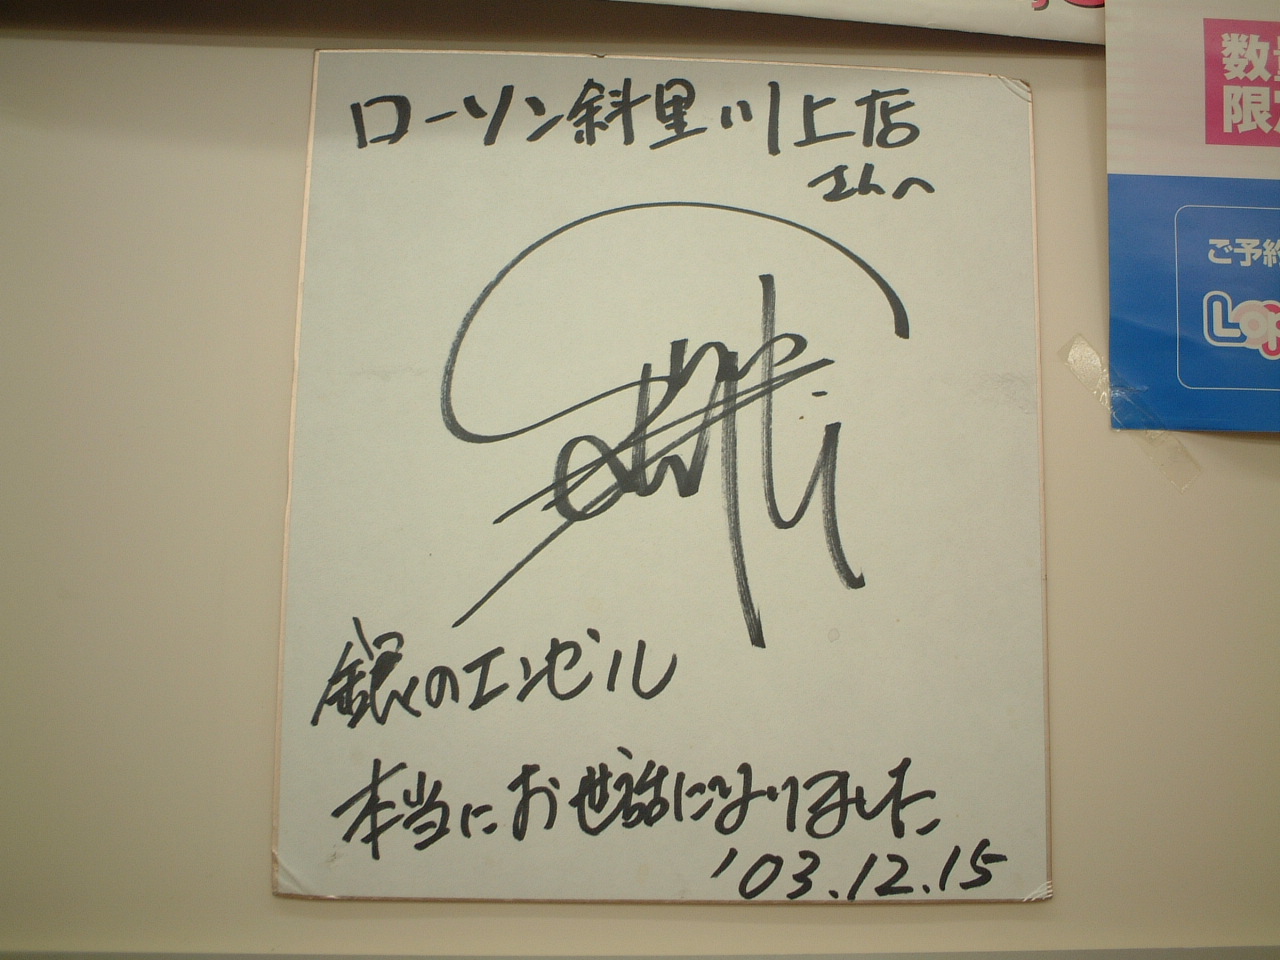 ローソン斜里川上店
さんへ
銀のエンゼル
本当にお世話になりました
'03.12.15
数
限
ご予約
Lop